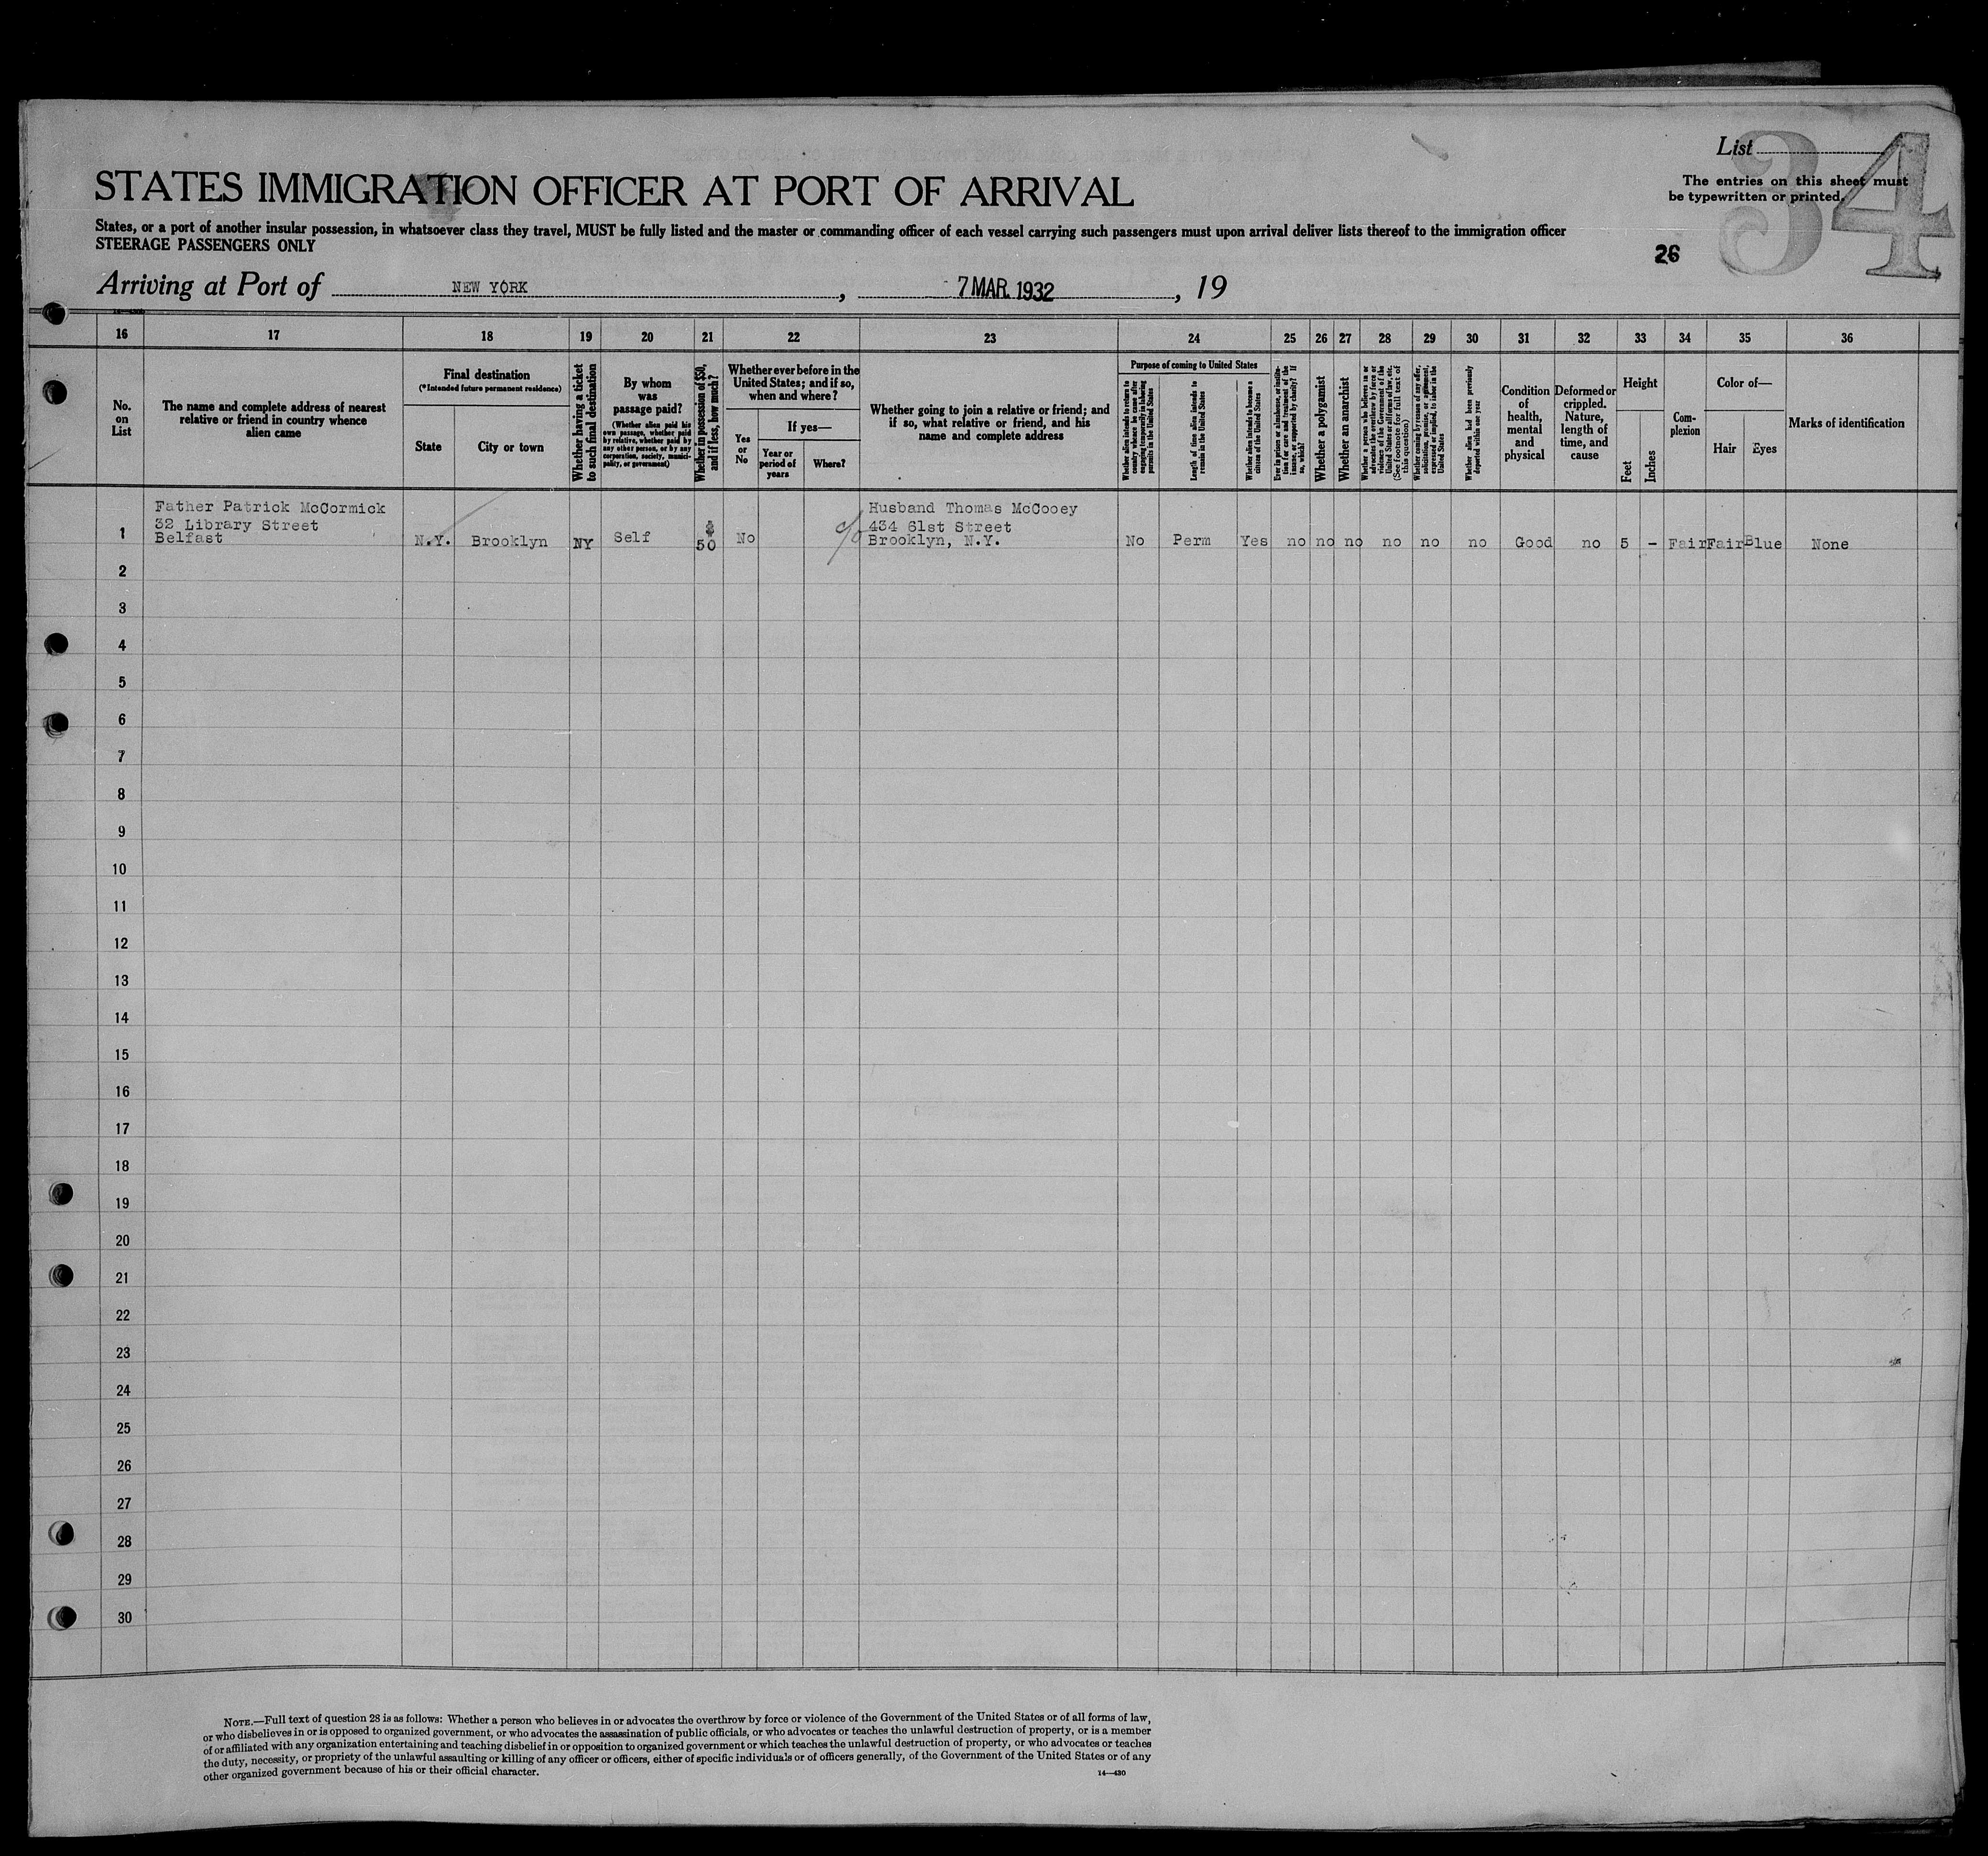 List
34
The entries on this sheet must
be typewritten or printed.
STATES IMMIGRATION OFFICER AT PORT OF ARRIVAL
States, or a port of another insular possession, in whatsoever class they travel, MUST be fully listed and the master or commanding officer of each vessel carrying such passengers must upon arrival deliver lists thereof to the immigration officer
STEERAGE PASSENGERS ONLY
26
Arriving at Port of NEW YORK, 7 MAR. 1932, 19
16 17 18 19 20 21 22 23 24 25 26 27 28 29 30 31 32 33 34 35 36
No.
on
List
The name and complete address of nearest
relative or friend in country whence
alien came
Final destination
(*Intended future permanent residence)
State
City or town
Whether having a ticket
to such final destination
By whom
was
passage paid?
(Whether alien paid his
own passage, whether paid
by relative, whether paid by
any other person, or by any
corporation, society, munici-
pality, or government)
Whether in possession of $50,
and if less, how much?
Whether ever before in the
United States; and if so,
when and where?
Yes
or
No
If yes—
Year or
period of
years
Where?
Whether going to join a relative or friend; and
if so, what relative or friend, and his
name and complete address
Purpose of coming to United States
Whether alien intends to return to
country whence he came after
engaging temporarily in laboring
pursuits in the United States
Length of time alien intends to
remain in the United States
Whether alien intends to become a
citizen of the United States
Ever in prison or almshouse, or institu-
tion for care and treatment of the
insane, or supported by charity? If
so, which?
Whether a polygamist
Whether an anarchist
Whether a person who believes in or
advocates the overthrow by force or
violence of the Government of the
United States or all forms of law, etc.
(See footnote for full text of
this question)
Whether coming by reason of any offer,
solicitation, promise, or agreement,
expressed or implied, to labor in the
United States
Whether alien had been previously
deported within one year
Condition
of
health,
mental
and
physical
Deformed or
crippled.
Nature,
length of
time, and
cause
Height
Feet
Inches
Com-
plexion
Color of—
Hair
Eyes
Marks of identification
Father Patrick McCormick
32 Library Street
Belfast
1 N.Y. Brooklyn NY Self 50 No
c/o
Husband Thomas McCooey
434 61st Street
Brooklyn, N.Y.
No Perm Yes no no no no no no Good no 5 - Fair Fair Blue None
2
3
4
5
6
7
8
9
10
11
12
13
14
15
16
17
18
19
20
21
22
23
24
25
26
27
28
29
30
NOTE.—Full text of question 28 is as follows: Whether a person who believes in or advocates the overthrow by force or violence of the Government of the United States or of all forms of law,
or who disbelieves in or is opposed to organized government, or who advocates the assassination of public officials, or who advocates or teaches the unlawful destruction of property, or is a member
of or affiliated with any organization entertaining and teaching disbelief in or opposition to organized government or which teaches the unlawful destruction of property, or who advocates or teaches
the duty, necessity, or propriety of the unlawful assaulting or killing of any officer or officers, either of specific individuals or of officers generally, of the Government of the United States or of any
other organized government because of his or their official character.
14—430